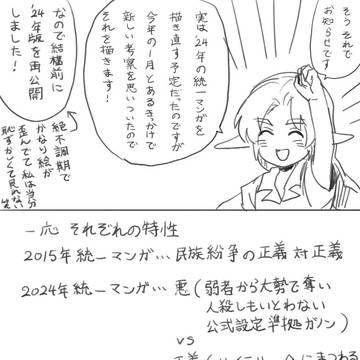 そう それで
お知らせです
実は24年の統一マンガを
描き直す予定だったのですが
今年の1月とあるきっかけで
新しい考察を思いついたので
それを描きます!
なので結構前に
'24年版を再公開
しました!
絶不調期で
かなり絵が
歪んでて私は当分
恥ずかしくて見れない
一応 それぞれの特性
2015年統一マンガ… 民族紛争の正義対正義
2024年統一マンガ… 悪(弱者から大勢で奪い
人殺しもいとわない
公式設定準拠ガノン)
VS